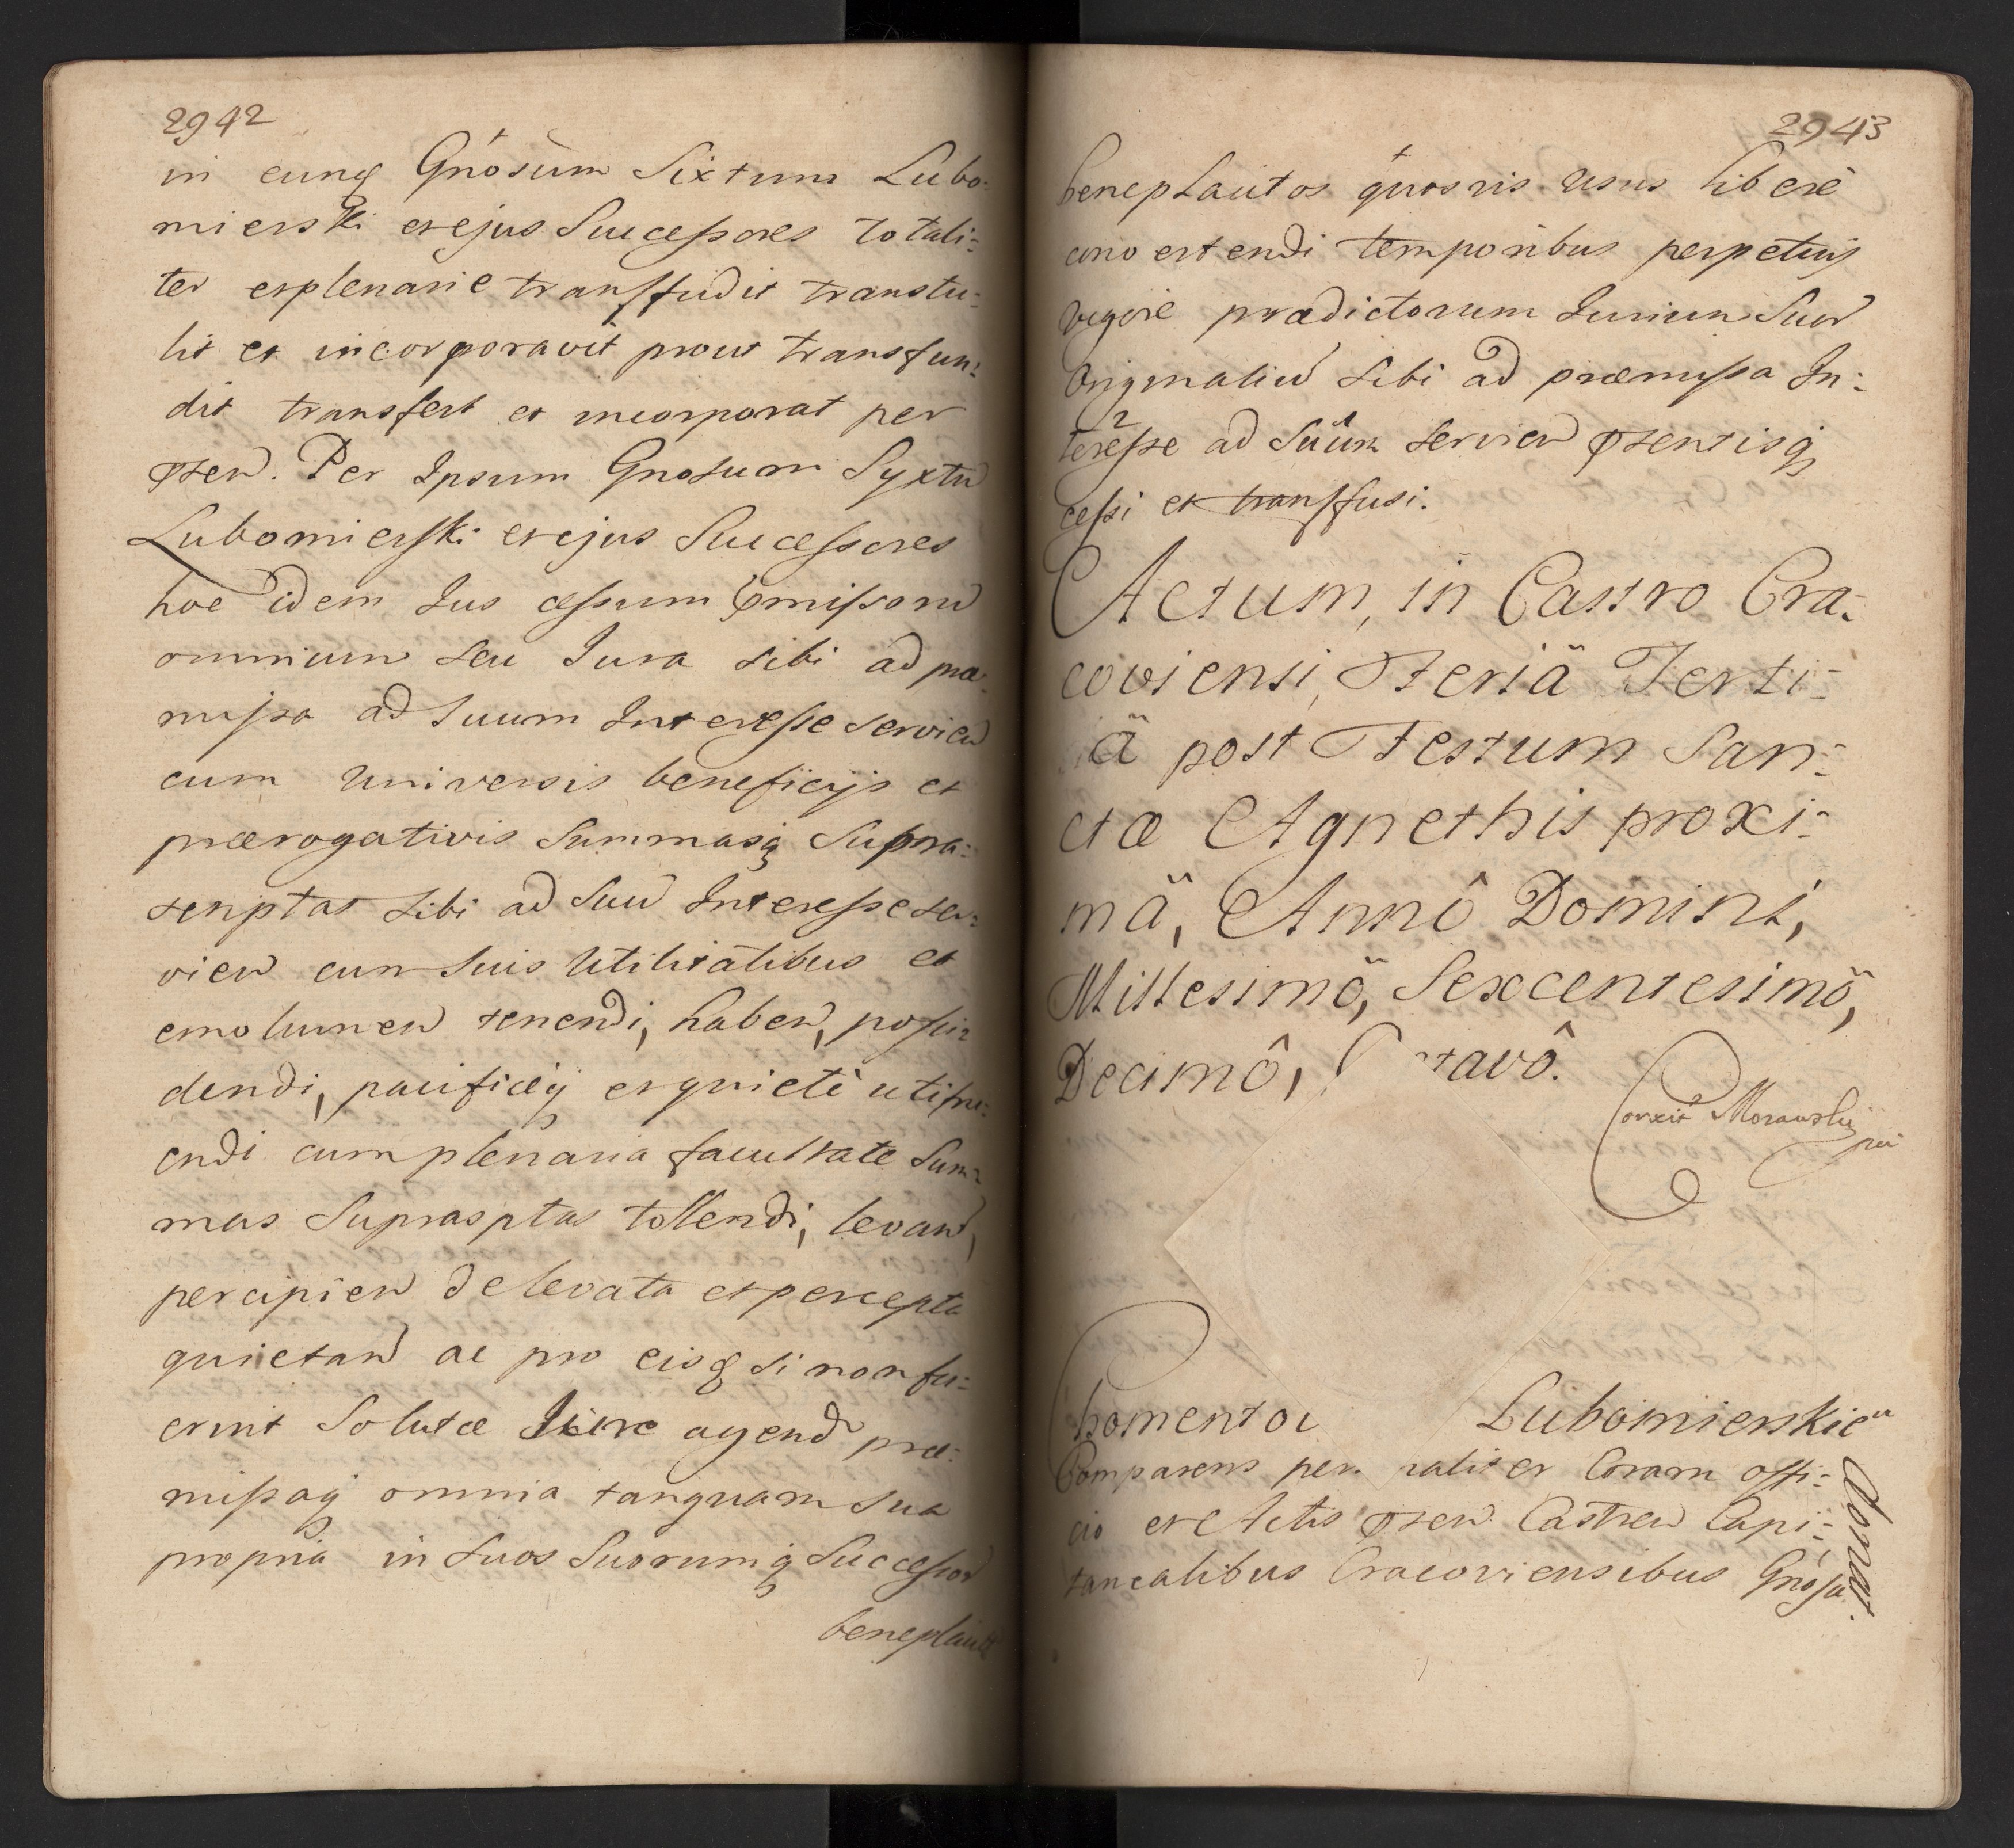 2942
in eunq Gnósum Sixtum Lubo:
mierski et ejus Successores totali:
ter et plenarie transffudit transtu:
lit et incorporavit prout transfun:
dit transfert et incorporat per
pnten. Per Ipsum Gnosum Syxtu
Lubomierski et ejus Successores
hoc idem Jus cessum pmissoru
omnium seu Jura sibi ad præ:
missa ad suum Interesse servien
cum universis beneficijs et
prærogativis Summasq Supra:
scriptas sibi ad suu Interesse ser:
vien cum suis utilitatibus et
emolumen tenendi, haben, possi:
dendi, pacificèq et quietè utifru:
endi cum plenaria facultate Sum:
mas Suprasptas tollendi, levand,
percipien de levata et percepta
quietand ac pro eisq si non fu:
erint Solutæ Jure agend præ:
missaq omnia tanquam sua
propria in suos Suorumq Successor
beneplacit
2943
beneplacitos quosvis usus liberè
convertendi temporibus perpetuis
vigore prædictorum Jurium Suor
Originaliu sibi ad præmissa In:
teresse ad suum servien pntentisq
cessi et transffusi.
Actum, in Castro Cra:
coviensi, Feriä Terti:
ä post Festum San:
ctæ Agnethis proxi:
mä, Annô Domini,
Millesimö, Sexcentesimö,
Decimô, tavô.
Correxit Morawski
Lubomierskie
Comparens per naliter Coram offi:
cio et Actis pnten Castren Capi:
tanealibus Cracoviensibus Gnósa
Donat.